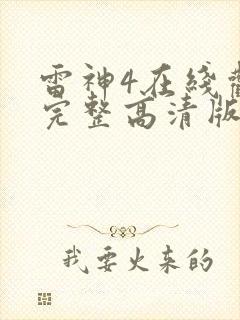 雷神4在线
完整高清版
我要火来的